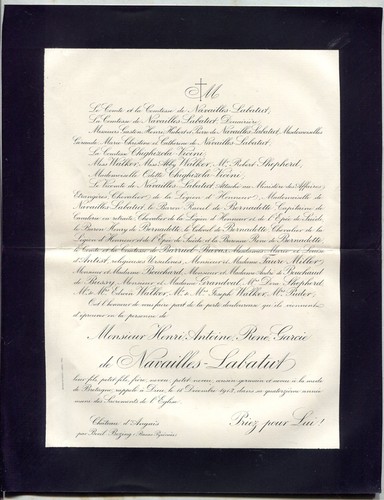 M
Le Comte et la Comtesse de Navailles Labatut,
La Comtesse de Navailles Labatut Douairière,
Messieurs Gaston, Henri, Hubert et Pierre de Navailles Labatut, Mesdemoiselles
Marie Christine et Catherine de Navailles Labatut,
La Comtesse Chighizola
Miss Walker, Miss Abby Walker, Mr Robert Shepherd,
Mademoiselle Odette Chighizola
Le Vicomte de Navailles Labatut Attaché au Ministère des Affaires
Étrangères, Chevalier de la Légion d'Honneur, Mademoiselle de
Navailles Labatut, le Baron Raoul de Bernadotte Capitaine de
en retraite, Chevalier de la Légion d'Honneur et de l'Épée de Suède,
le Baron Henry de Bernadotte, le Colonel de Bernadotte Chevalier de la
Légion d'Honneur et de l'Épée de Suède et la Baronne de Bernadotte,
le Comte et la Comtesse de Mesdames Marie et
d'Antist, religieuses Ursulines, Monsieur et Madame Faure Miller,
Monsieur et Madame Bouchard, Monsieur et Madame de Bouchaud
de Bussy, Monsieur et Madame Grandval, Mrs Dove Shepherd,
Mr & Mrs Edwin Walker, Mr & Mrs Joseph Walker, Mrs
Ont l'honneur de vous faire part de la perte douloureuse qu'ils viennent
d'éprouver en la personne de
Monsieur Henri Antoine René Garcie
de Navailles-Labatut
leur fils, petit-fils, frère, neveu, petit neveu, cousin germain et cousin à la mode
de Bretagne, rappelé à Dieu, le Décembre dans sa quatorzième année
muni des Sacrements de l'Église.
Château d'Angaïs
par Pyrénées
Priez pour Lui!